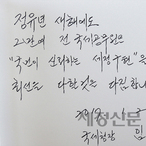 정유년 새해에도
2만여 전 국세공무원은
"국민이 신뢰하는 세정 구현"을
최선을 다할 것을 다짐합니다
국세청장 임
세정신문